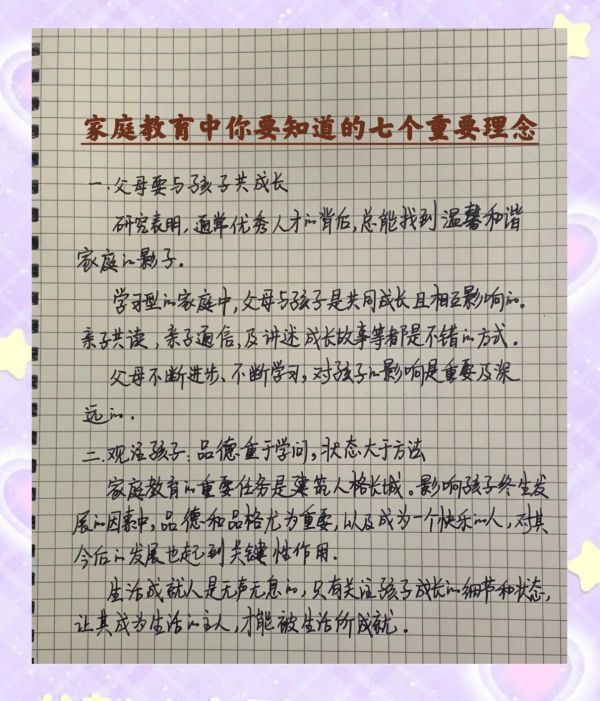 家庭教育中你要知道的七个重要理念
一.父母要与孩子共成长
研究表明,通常优秀人才的背后,总能找到温馨和谐
家庭的影子.
学习型的家庭中,父母与孩子是共同成长且相互影响的.
亲子共读,亲子通信,及讲述成长故事等都是不错的方式.
父母不断进步、不断学习,对孩子的影响是重要及深
远的.
二.观注孩子:品德重于学问,状态大于方法
家庭教育的重要任务是建筑人格长城。影响孩子终生发
展的因素中,品德和品格尤为重要,以及成为一个快乐的人,对其
今后的发展也起到关键性作用.
生活成就人是无声无息的,只有关注孩子成长的细节和状态,
让其成为生活的主人,才能被生活所成就.